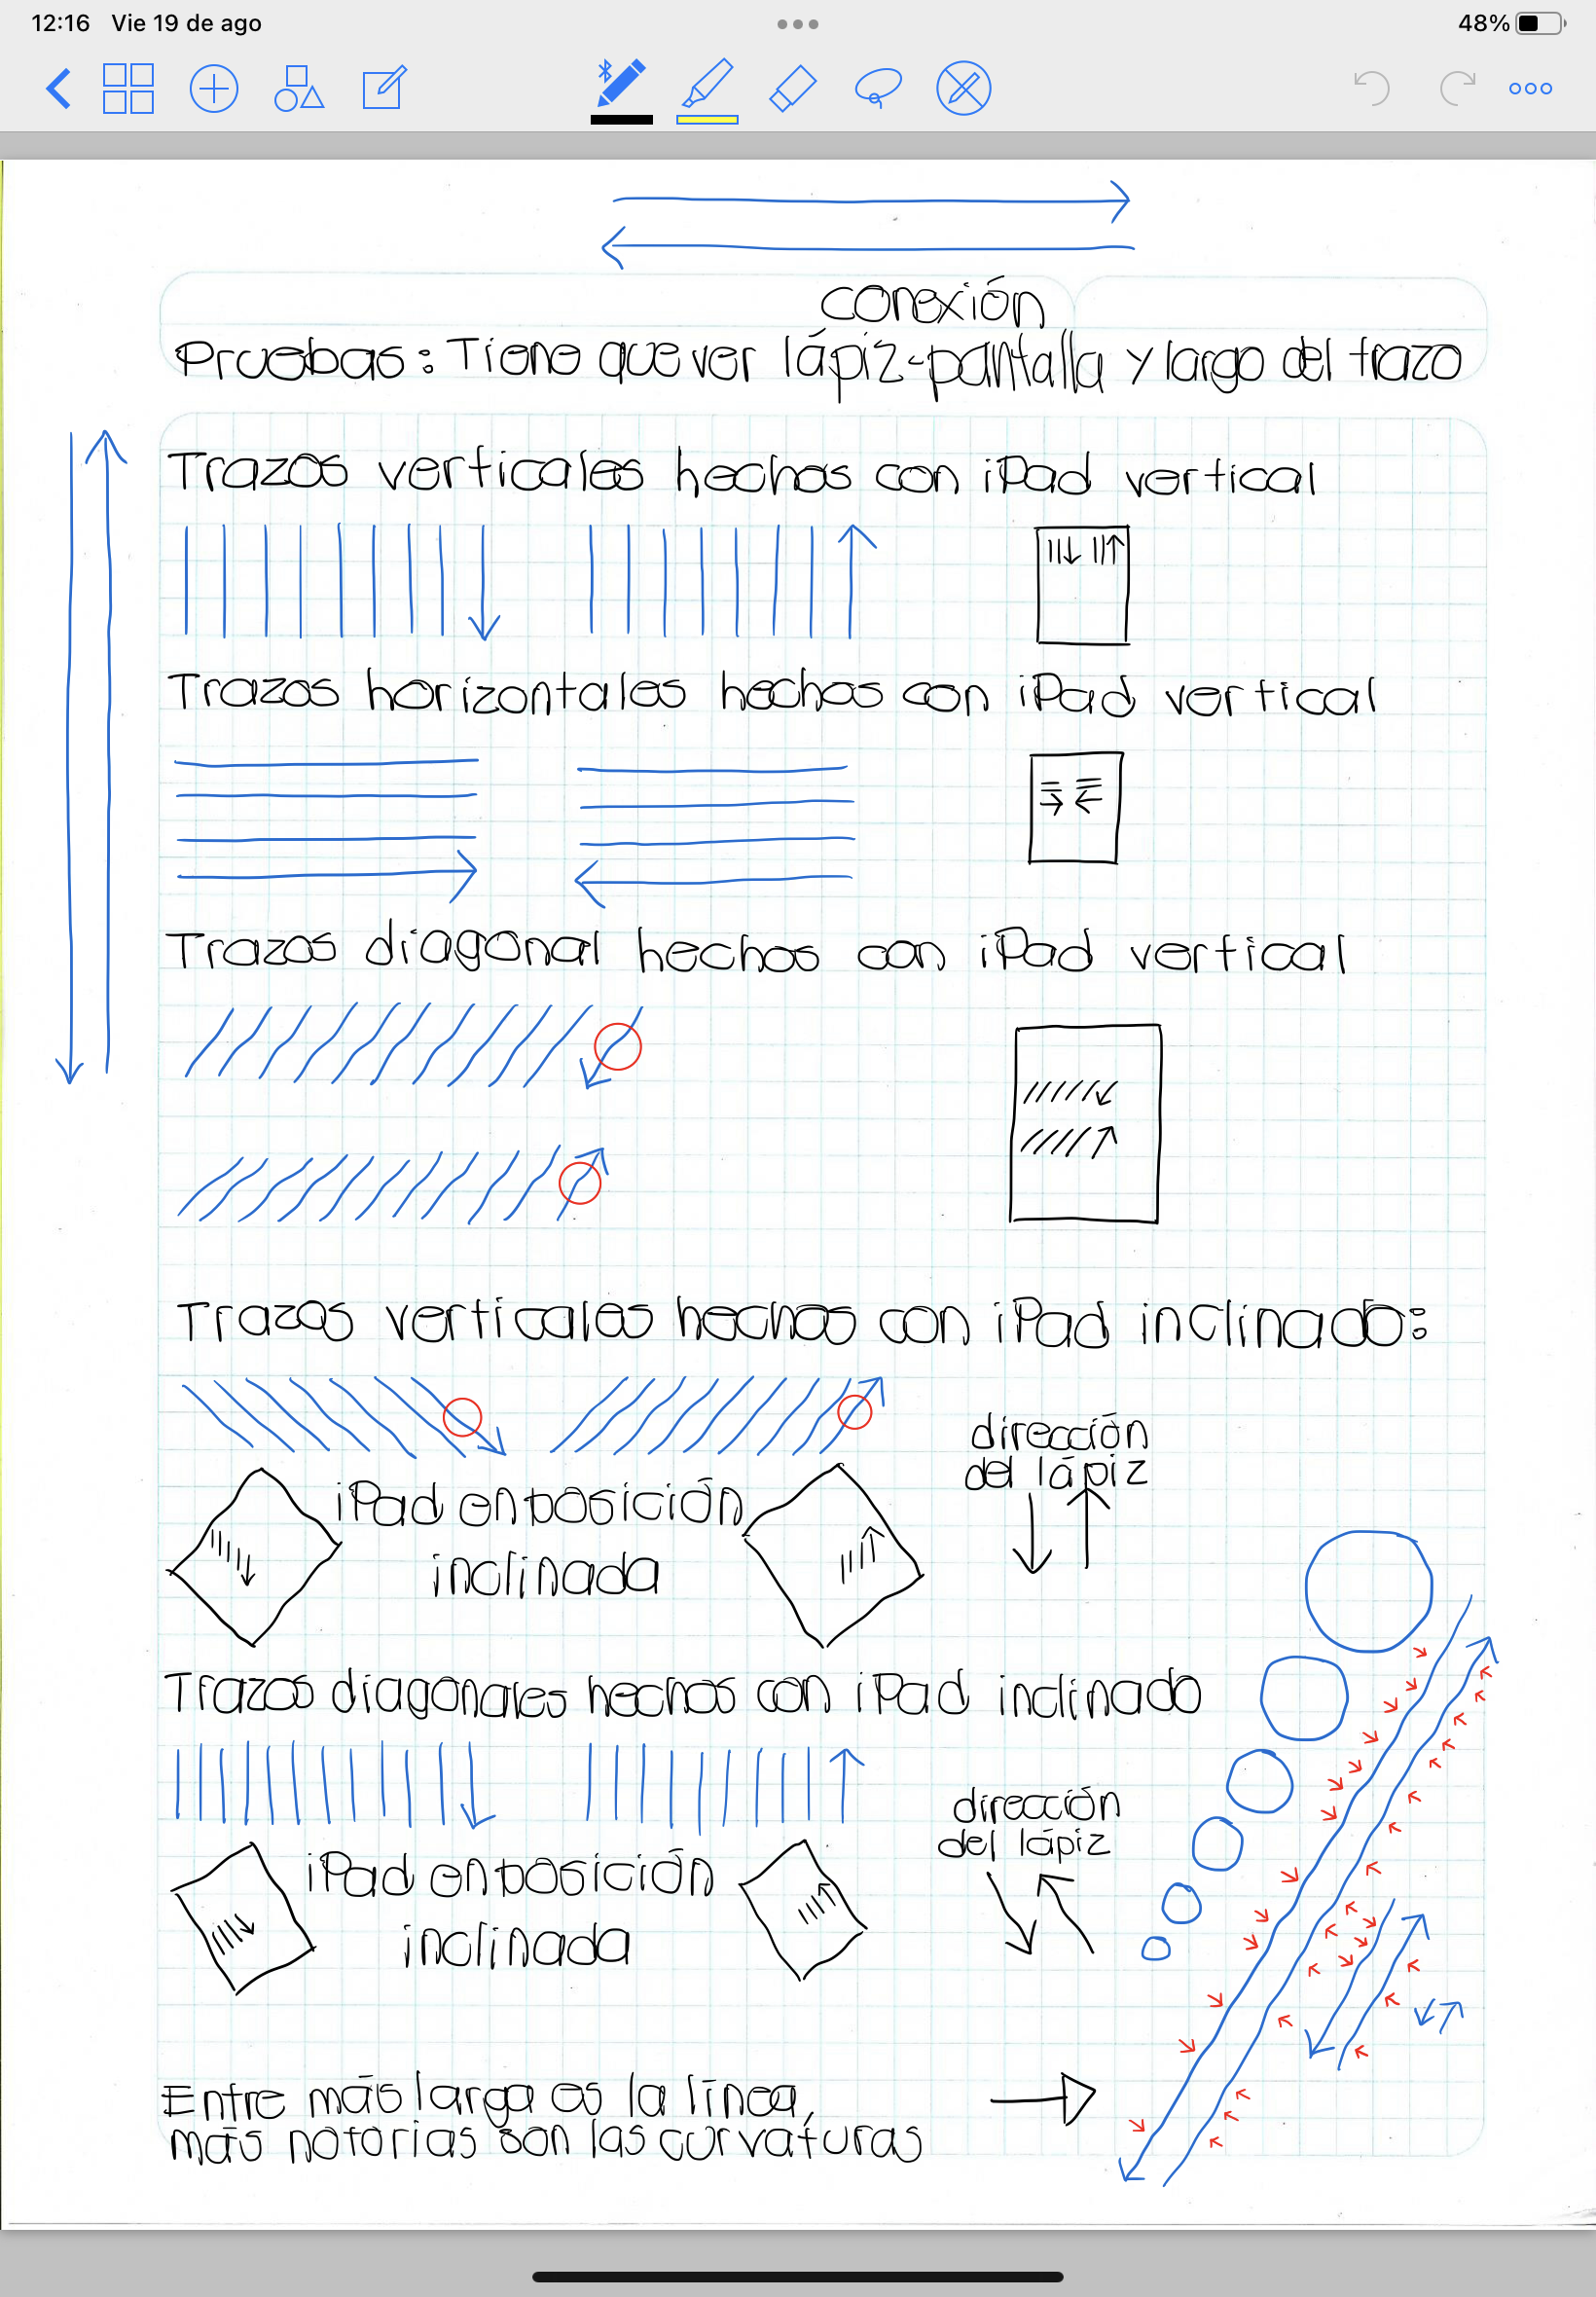 12:16 Vie 19 de ago
48%
conexión
Pruebas: Tiene que ver lápiz-pantalla y largo del trazo
Trazos verticales hechos con iPad vertical
Trazos horizontales hechos con iPad vertical
Trazos diagonal hechos con iPad vertical
Trazos verticales hechos con iPad inclinado:
dirección
del lápiz
iPad en posición
inclinada
Trazos diagonales hechos con iPad inclinado
dirección
del lápiz
iPad en posición
inclinada
Entre más larga es la línea,
más notorias son las curvaturas